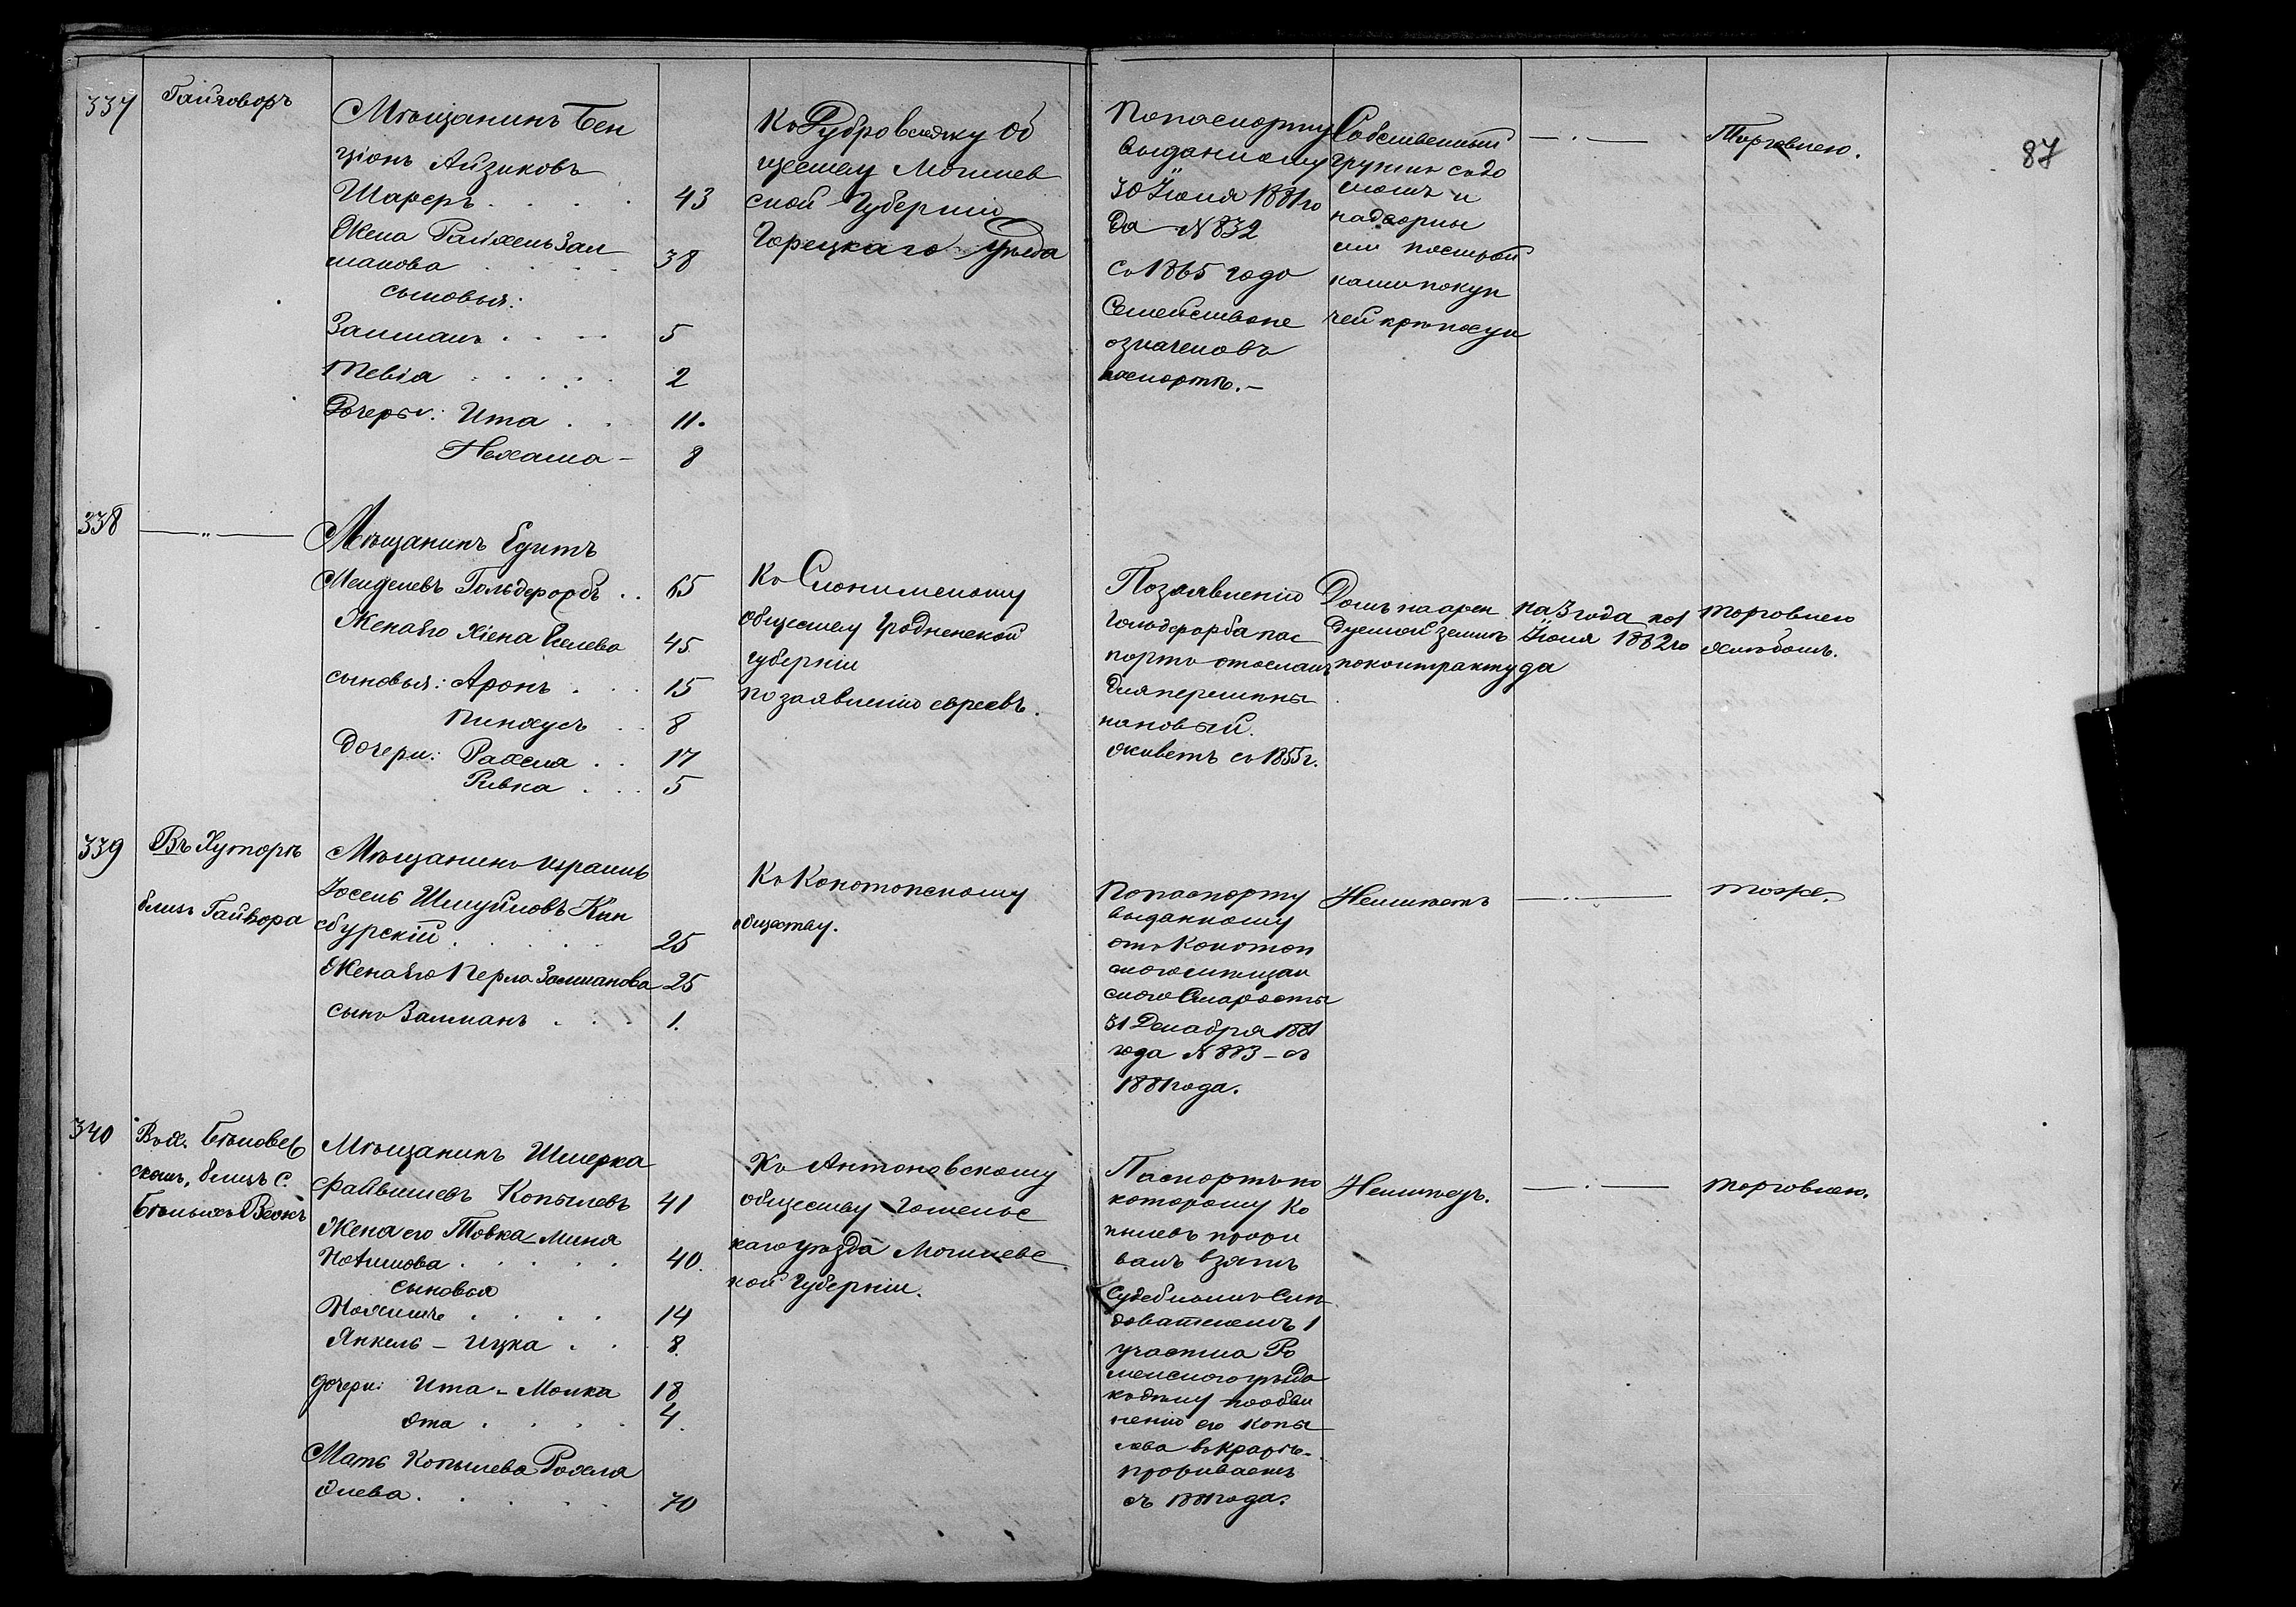 337
Гайворъ
Мѣщанинъ Бен
ціонъ Айзиковъ
Шареръ . . . . 43
Жена Райхель Зал
манова . . . . 38
сыновья:
Залманъ . . . . 5
Тевія . . . . . 2
Дочеры: Ита . . 11.
Нехама – 8
Ко Дубровскому Об
ществу Могилев
ской Губерніи
Горецкаго Уѣзда
По паспорту
выданному
30 Іюня 1881 го
да N 832
Съ 1865 года
Семейство не
означено въ
паспортѣ.–
Собственный
грунтъ съ до
момъ и
надворны
ми построй
ками по куп
чей крѣпости
—·—
Торговлею.
87
338
—„—
Мѣщанинъ Едитъ
Менделевъ Гольдфорбъ . . 65
Жена его Хіена Еселева 45
сыновья: Аронъ . . . 15
Пинхусъ . . 8
Дочери: Рахля . . 17
Ривка . . . 5
Ко Слонимскому
обществу Гродненской
губерніи
по заявленію евреевъ.
По заявленію
Гольдфорба пас
портъ отосланъ
для перемѣны
на новый.
живетъ съ 1855 г.
Домъ на арен
дуемой землѣ
по контракту
на 3 года по 1
Іюня 1882 го
да
торговлею
хлѣбомъ.
339
Въ Хуторѣ
близъ Гайвора
Мѣщанинъ Израиль
Іосель Шмуйловъ Кин
сбурскій . . . . . 25
Жена его Перла Залманова 25
сынъ Залманъ . . . 1.
Ко Конотопскому
обществу.
По паспорту
выданному
отъ Конотоп
скаго мѣщан
скаго Старосты
31 Декабря 1881
года N 883 – съ
1881 года.
Неимѣетъ
—·—
тоже.
340
Въ х. Бѣловод
скомъ, близъ с.
Бѣлыхъ Вежъ
Мѣщанинъ Шмерка
Файвишевъ Копылевъ 41
Жена его Товка-Миня
. . . . . 40.
сыновья
Нохимъ . . . . 14
Янкель – Ицка . . 8.
дочери: Ита – Молка 18
Эта . . . . 4.
Мать Копылева Рохля
Элева . . . . . 70
Ко Антоновскому
обществу Гомельс
каго уѣзда Могилевс
кой Губерніи.
Паспортъ по
которому Ко
пылевъ прожи
валъ взятъ
Судебнымъ Слѣ
дователемъ 1
участка Ро
менскаго уѣзда
къ дѣлу по обви
ненію его Копы
лева въ кражѣ–
проживаетъ
съ 1881 года.
Неимѣетъ.
—·—
торговлею.